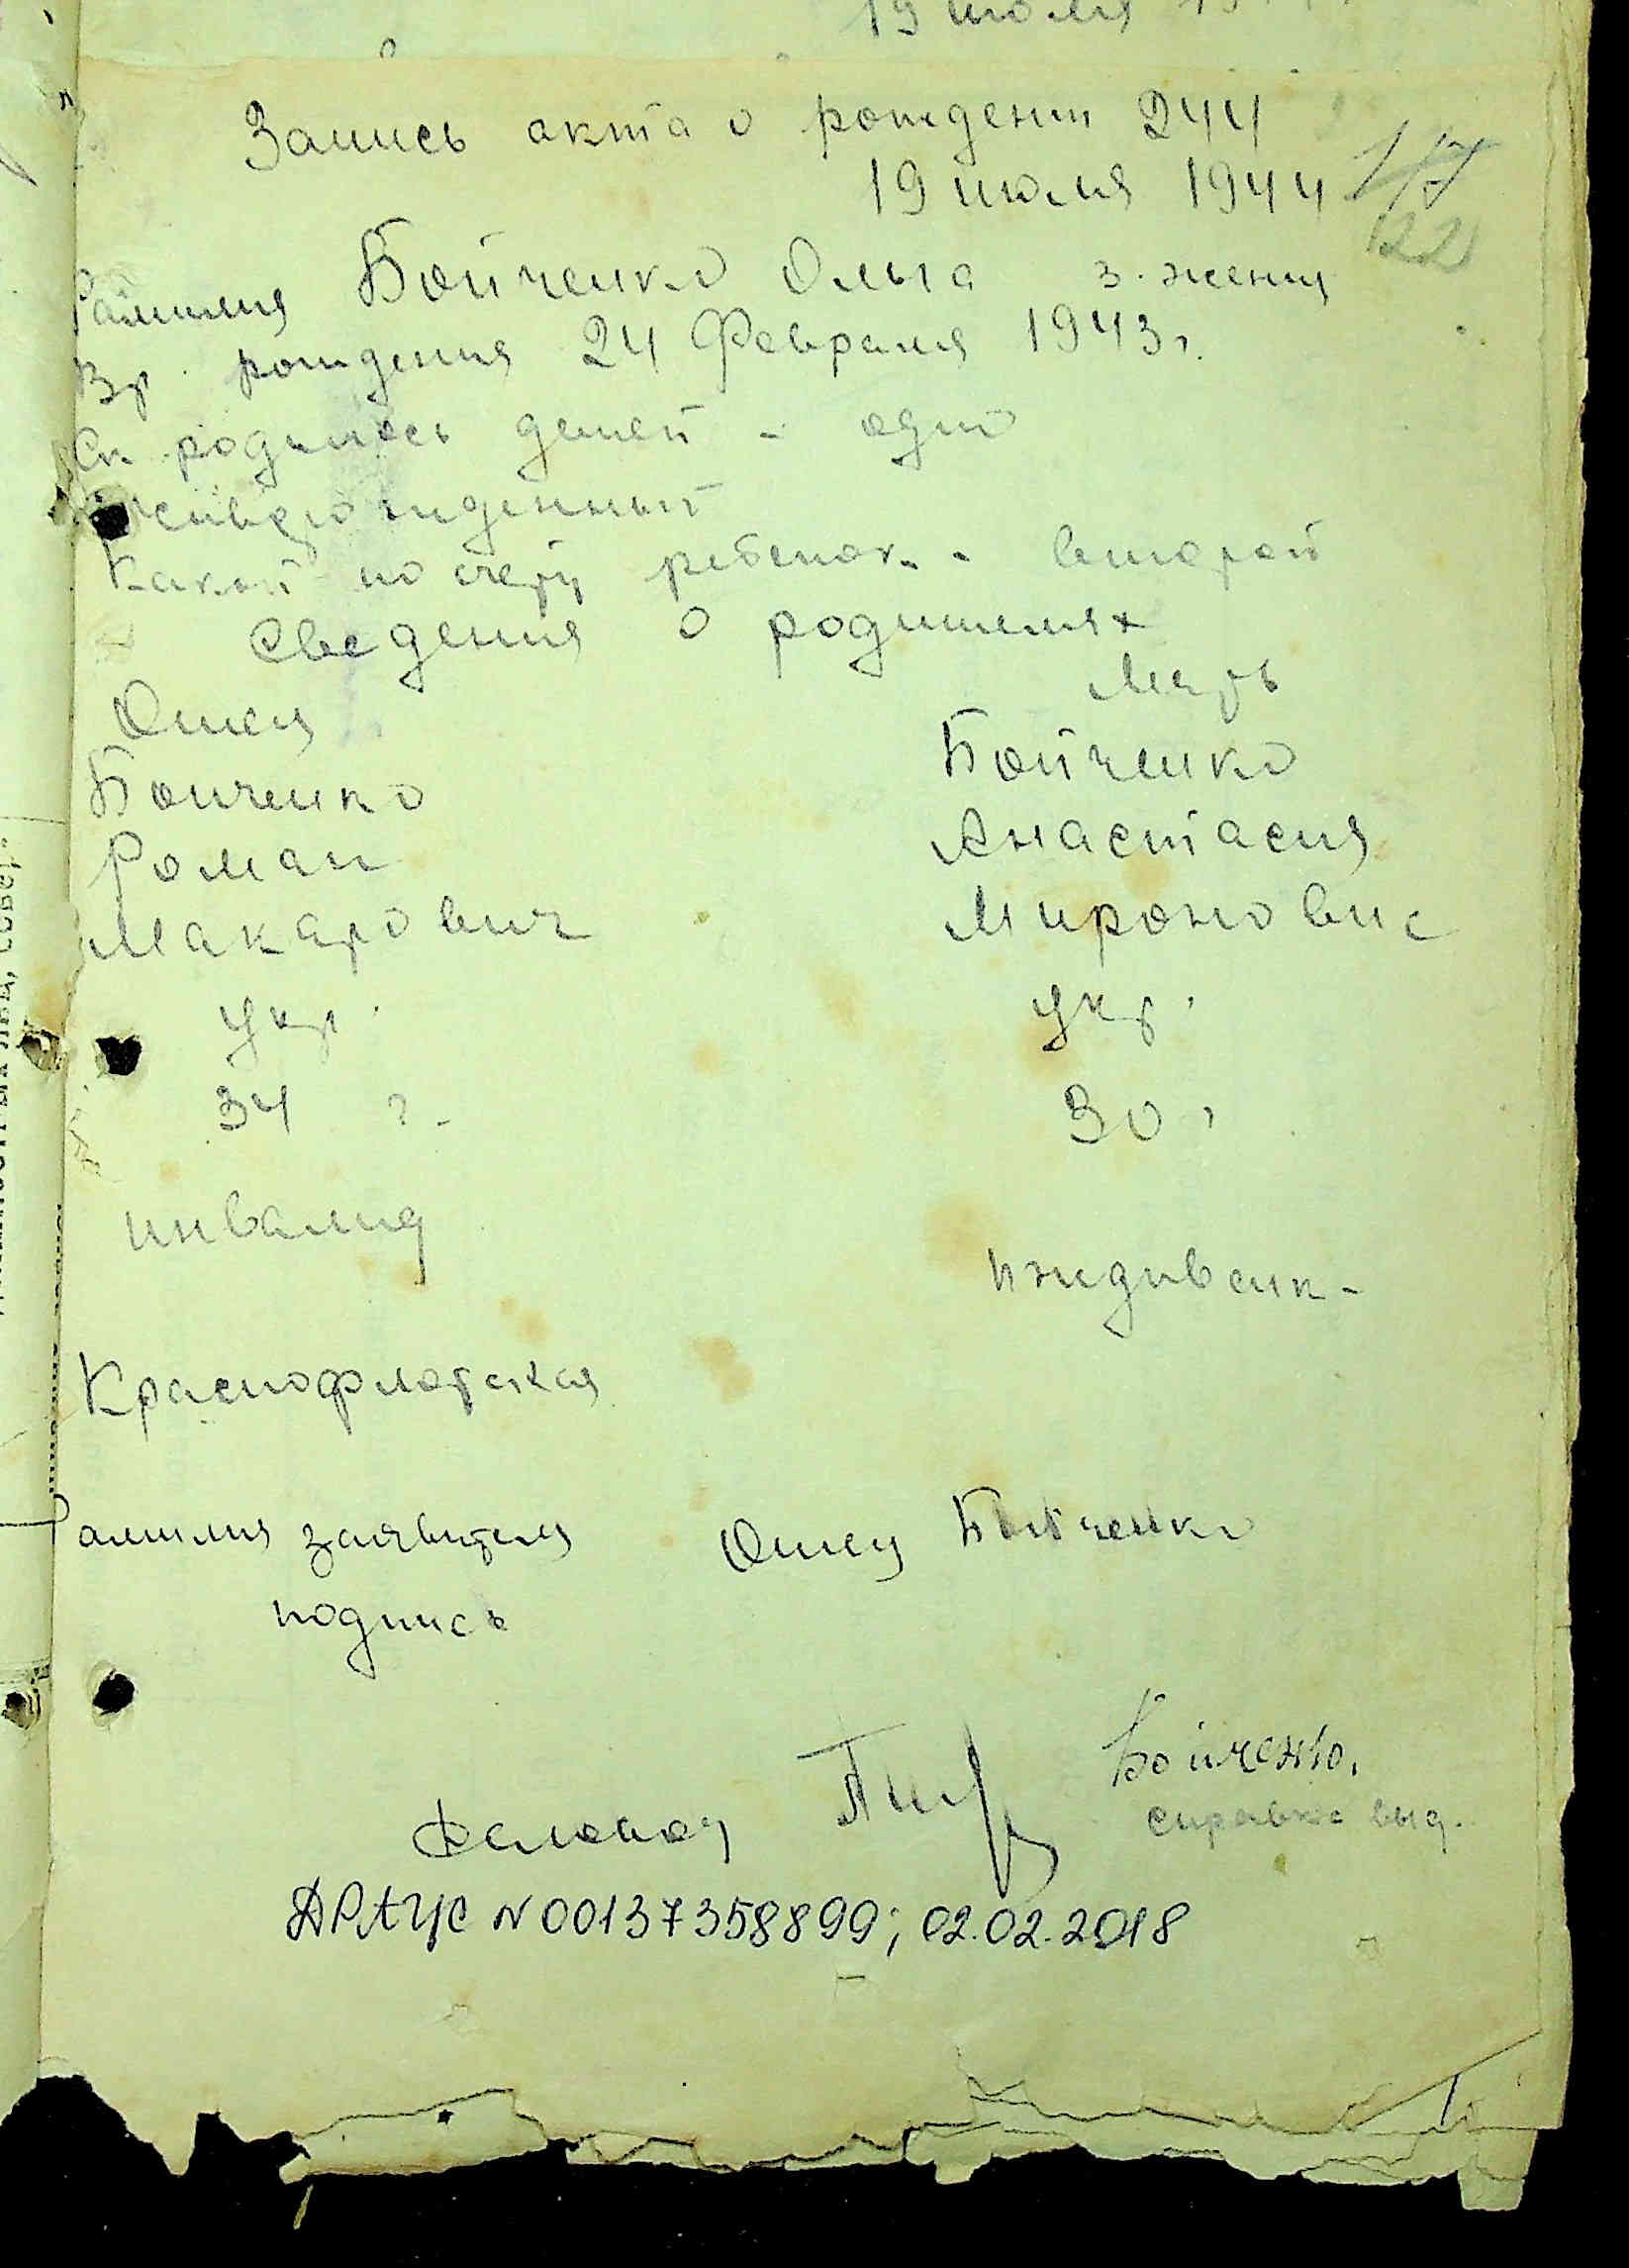 19 июля
Запись акта о рождении 244
19 июля 1944
17
22
Фамилия Бойченко Ольга 3. жения
Вр рождения 24 Февраля 1943г.
Ск родилось детей - одно
Какой по счету ребенок - второй
Сведения о родителях
Отец Мать
Боиченко Бойченко
Роман Анастасия
Макарович Мироновис
укр. укр.
34 г. 30
инвалид
иждивенк-
Краснофлотская
Фамилия заявителя Отец Бойченко
подпись
Бойченко.
справка выд.
ДРАЦС N 00137358899; 02.02.2018